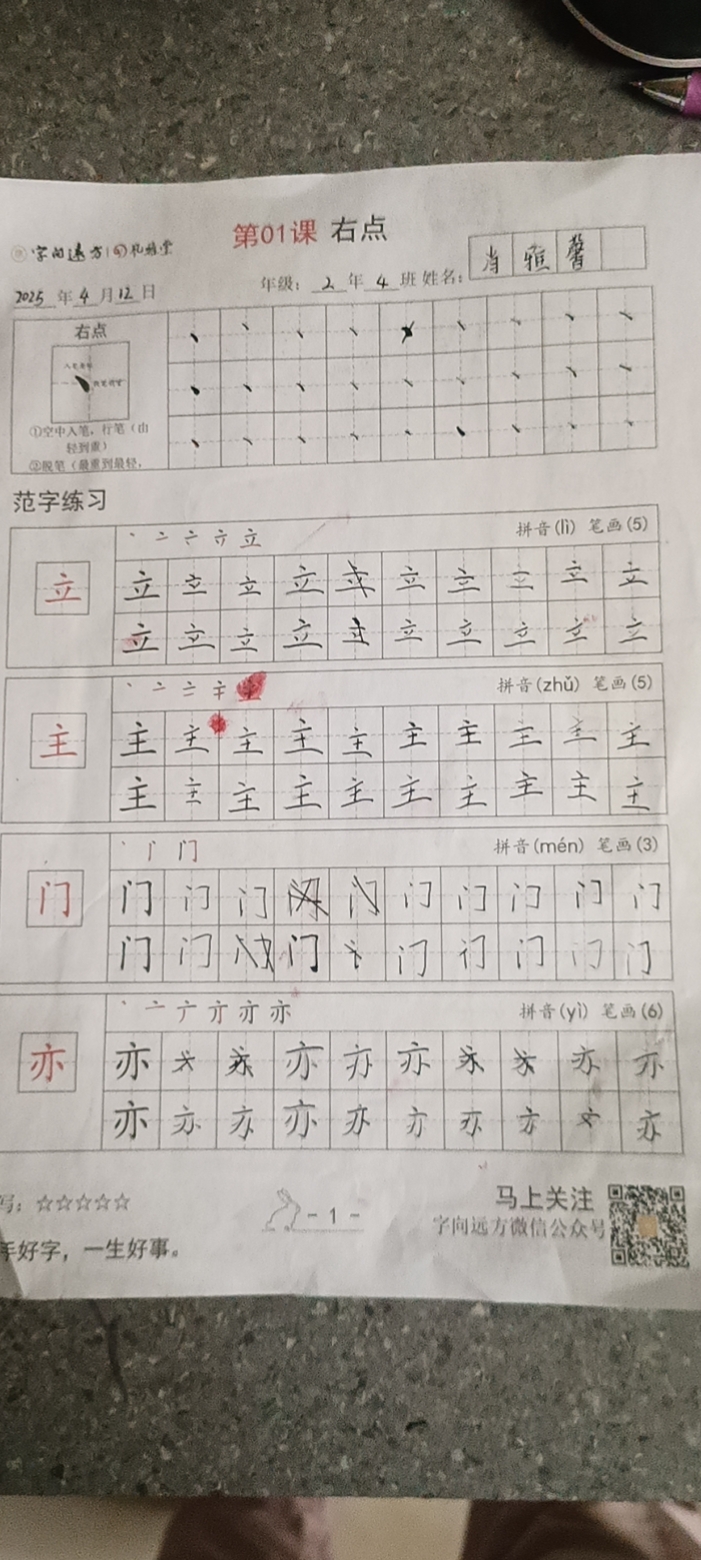 第01课 右点
字向远方
2025年4月12日 年级：2年4班 姓名：肖雅馨
右点
①空中入笔，行笔（由
轻到重）
②脱笔（最重到最轻，
范字练习
丶 亠 立 拼音(lì) 笔画(5)
立 立 立 立 立 立 立 立 立 立 立
立 立 立 立 立 立 立 立 立 立
丶 亠 主 拼音(zhǔ) 笔画(5)
主 主 主 主 主 主 主 主 主 主 主
主 主 主 主 主 主 主 主 主 主
丶 门 拼音(mén) 笔画(3)
门 门 门 门 门 门 门 门 门 门
门 门 门 门 门 门 门 门
丶 亠 亦 拼音(yì) 笔画(6)
亦 亦 亦 亦 亦 亦 亦 亦 亦 亦
亦 亦 亦 亦 亦 亦 亦 亦 亦
写：☆☆☆☆☆
- 1 -
马上关注
字向远方微信公众号
手好字，一生好事。